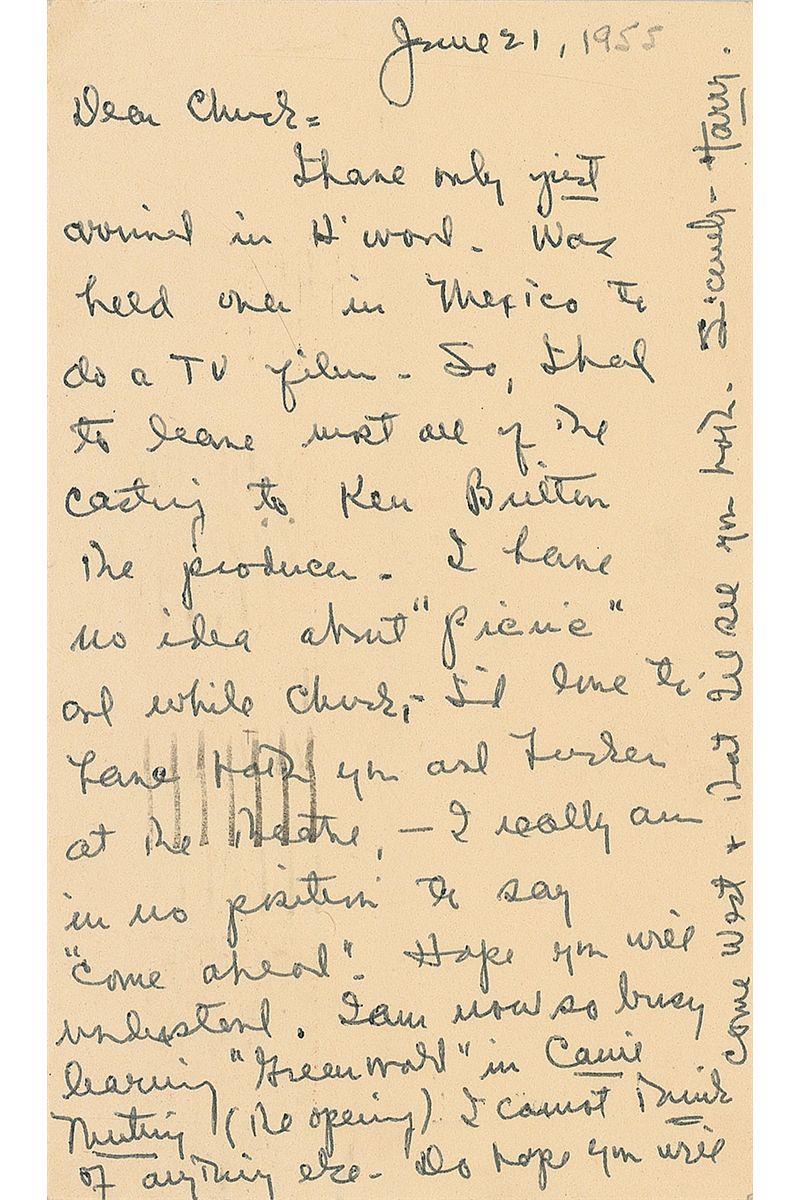 June 21, 1955
Dear Chuck =
I have only just
arrived in H'wood. Was
held over in Mexico to
do a TV film - So, I had
to leave most all of the
casting to Ken Britton
the producer - I have
no idea about "Picnic"
and while Chuck, - I'd love to
have both you and Tucker
at the theatre, - I really am
in no position to say
"come ahead". Hope you will
understand. I am now so busy
learning "Greenwald" in Caine
Mutiny (the opening) I cannot think
of anything else - Do hope you will
come West + that I'll see you both. Sincerely - Harry.